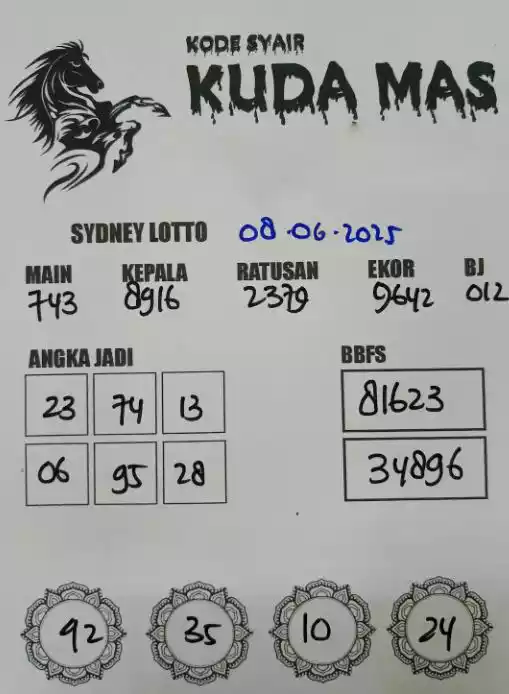 KODE SYAIR
KUDA MAS
SYDNEY LOTTO 08-06-2025
MAIN KEPALA RATUSAN EKOR BJ
743 8916 2379 9642 012
ANGKA JADI BBFS
23 74 13 81623
06 95 28 34896
92 35 10 24